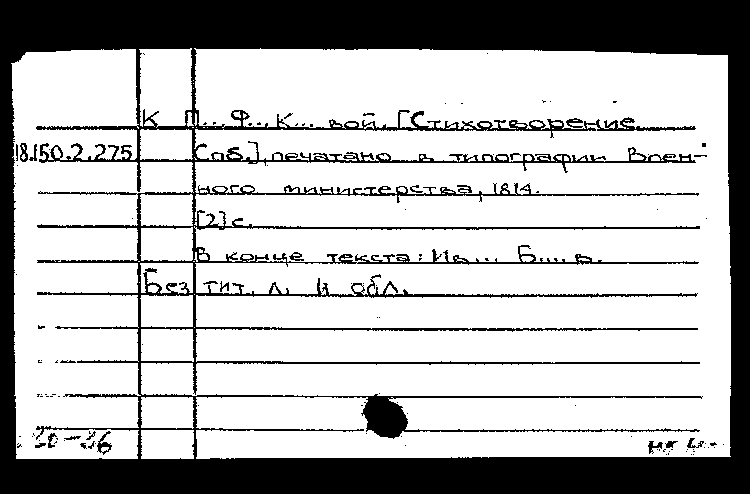 К П... Ф... К... вой. [Стихотворение.
18.150.2.275 Спб.], печатано в типографии Воен-
ного министерства, 1814.
[2] с.
В конце текста: Ив... Б....в.
Без тит. л. и обл.
30-86